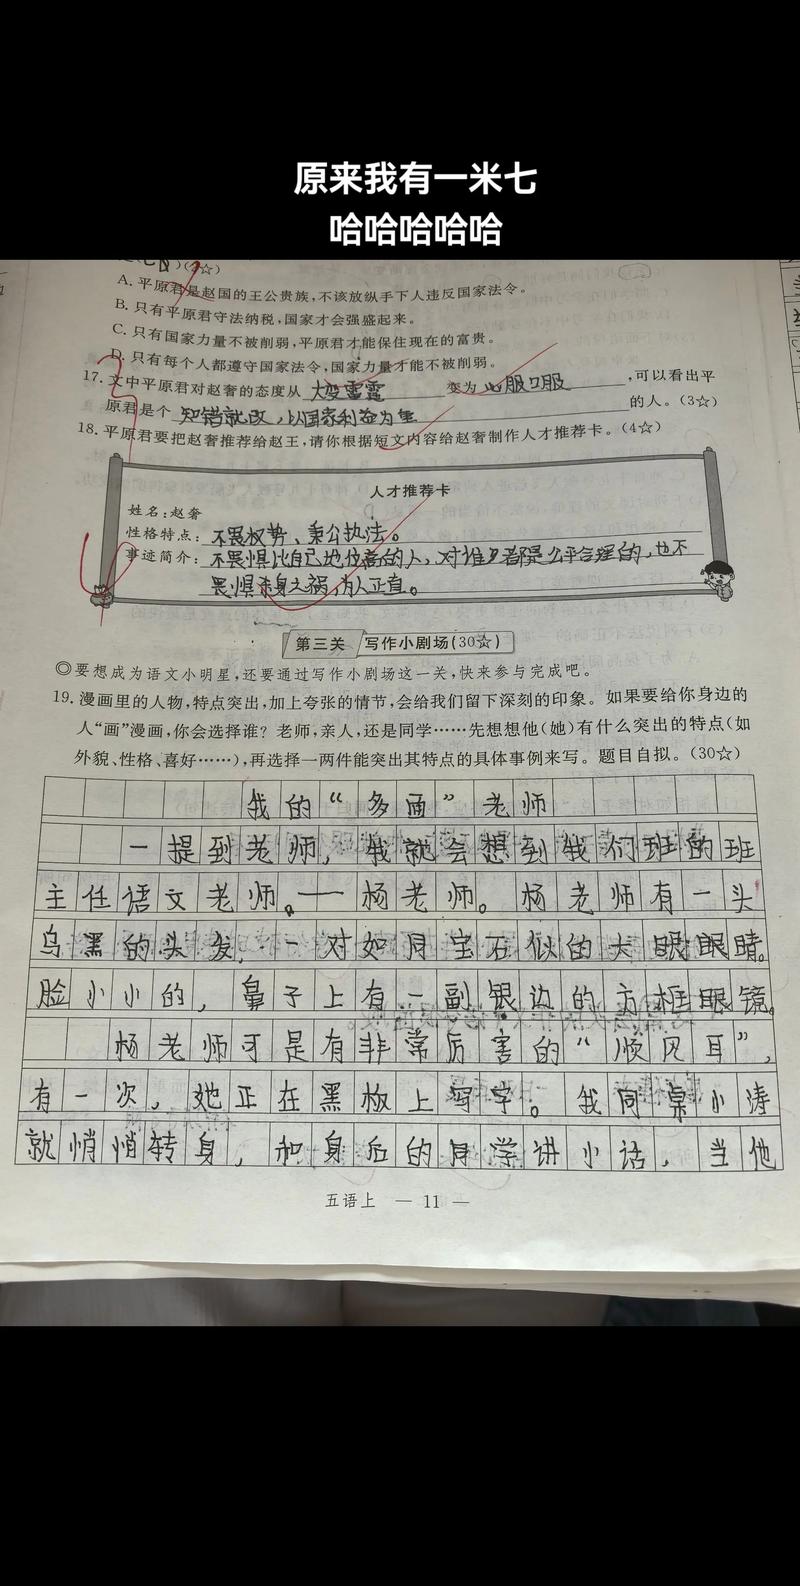 原来我有一米七
哈哈哈哈哈
(2☆)
A. 平原君是赵国的王公贵族，不该放纵手下人违反国家法令。
B. 只有平原君守法纳税，国家才会强盛起来。
C. 只有国家力量不被削弱，平原君才能保住现在的富贵。
D. 只有每个人都遵守国家法令，国家力量才能不被削弱。
17. 文中平原君对赵奢的态度从 大发雷霆 变为 心服口服 ，可以看出平
原君是个 知错就改，以国家利益为重 的人。(3☆)
18. 平原君要把赵奢推荐给赵王，请你根据短文内容给赵奢制作人才推荐卡。(4☆)
人才推荐卡
姓名：赵奢
性格特点：不畏权势、秉公执法。
事迹简介：不畏惧比自己地位高的人，对谁都是公平合理的，也不
畏惧杀身之祸，为人正直。
第三关 写作小剧场(30☆)
◎要想成为语文小明星，还要通过写作小剧场这一关，快来参与完成吧。
19. 漫画里的人物，特点突出，加上夸张的情节，会给我们留下深刻的印象。如果要给你身边的
人“画”漫画，你会选择谁？老师，亲人，还是同学……先想想他(她)有什么突出的特点(如
外貌、性格、喜好……)，再选择一两件能突出其特点的具体事例来写。题目自拟。(30☆)
我的“多面”老师
一提到老师，我就会想到我们班的班
主任语文老师。——杨老师。杨老师有一头
乌黑的头发，一对如同宝石似的大眼眼睛。
脸小小的，鼻子上有一副银边的方框眼镜。
杨老师可是有非常厉害的“顺风耳”，
有一次，她正在黑板上写字。我同桌小涛
就悄悄转身，和身后的同学讲小话，当他
五语上 — 11 —